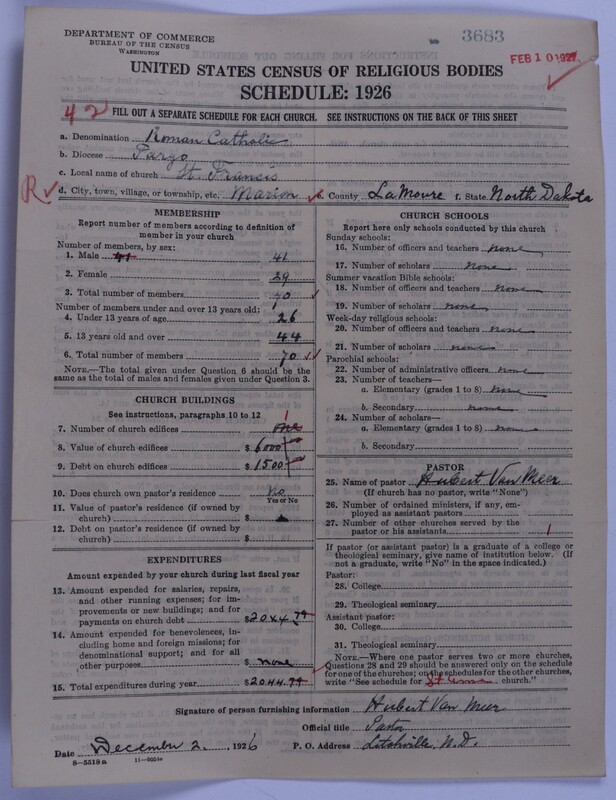 DEPARTMENT OF COMMERCE
BUREAU OF THE CENSUS
WASHINGTON
3683
FEB 10 1927
UNITED STATES CENSUS OF RELIGIOUS BODIES
SCHEDULE: 1926
42
FILL OUT A SEPARATE SCHEDULE FOR EACH CHURCH. SEE INSTRUCTIONS ON THE BACK OF THIS SHEET
a. Denomination Roman Catholic
b. Diocese Fargo
c. Local name of church St. Francis
R
d. City, town, village, or township, etc. Marion e. County LaMoure f. State North Dakota
MEMBERSHIP
Report number of members according to definition of
member in your church
Number of members, by sex:
1. Male 41 41
2. Female 29
3. Total number of members 70
Number of members under and over 13 years old:
4. Under 13 years of age 26
5. 13 years old and over 44
6. Total number of members 70
NOTE.—The total given under Question 6 should be the
same as the total of males and females given under Question 3.
CHURCH BUILDINGS
See instructions, paragraphs 10 to 12
1
7. Number of church edifices one
8. Value of church edifices $ 6000
9. Debt on church edifices $ 1500
10. Does church own pastor's residence No
Yes or No
11. Value of pastor's residence (if owned by
church) $
12. Debt on pastor's residence (if owned by
church) $
EXPENDITURES
Amount expended by your church during last fiscal year
13. Amount expended for salaries, repairs,
and other running expenses; for im-
provements or new buildings; and for
payments on church debt $2044.79
14. Amount expended for benevolences, in-
cluding home and foreign missions; for
denominational support; and for all
other purposes $ none
15. Total expenditures during year $2044.79
CHURCH SCHOOLS
Report here only schools conducted by this church
Sunday schools:
16. Number of officers and teachers none
17. Number of scholars None
Summer vacation Bible schools:
18. Number of officers and teachers None
19. Number of scholars none
Week-day religious schools:
20. Number of officers and teachers none
21. Number of scholars none
Parochial schools:
22. Number of administrative officers none
23. Number of teachers—
a. Elementary (grades 1 to 8) none
b. Secondary none
24. Number of scholars—
a. Elementary (grades 1 to 8) none
b. Secondary
PASTOR
25. Name of pastor Hubert Van Meer
(If church has no pastor, write "None")
26. Number of ordained ministers, if any, em-
ployed as assistant pastors
27. Number of other churches served by the
pastor or his assistants 1
If pastor (or assistant pastor) is a graduate of a college or
theological seminary, give name of institution below. (If
not a graduate, write "No" in the space indicated.)
Pastor:
28. College
29. Theological seminary
Assistant pastor:
30. College
31. Theological seminary
NOTE.—Where one pastor serves two or more churches,
Questions 28 and 29 should be answered only on the schedule
for one of the churches; on the schedules for the other churches,
write "See schedule for St Anna church."
Signature of person furnishing information Hubert Van Meer
Official title Pastor
Date December 2, 1926 P. O. Address Litchville, N.D.
8—5518a